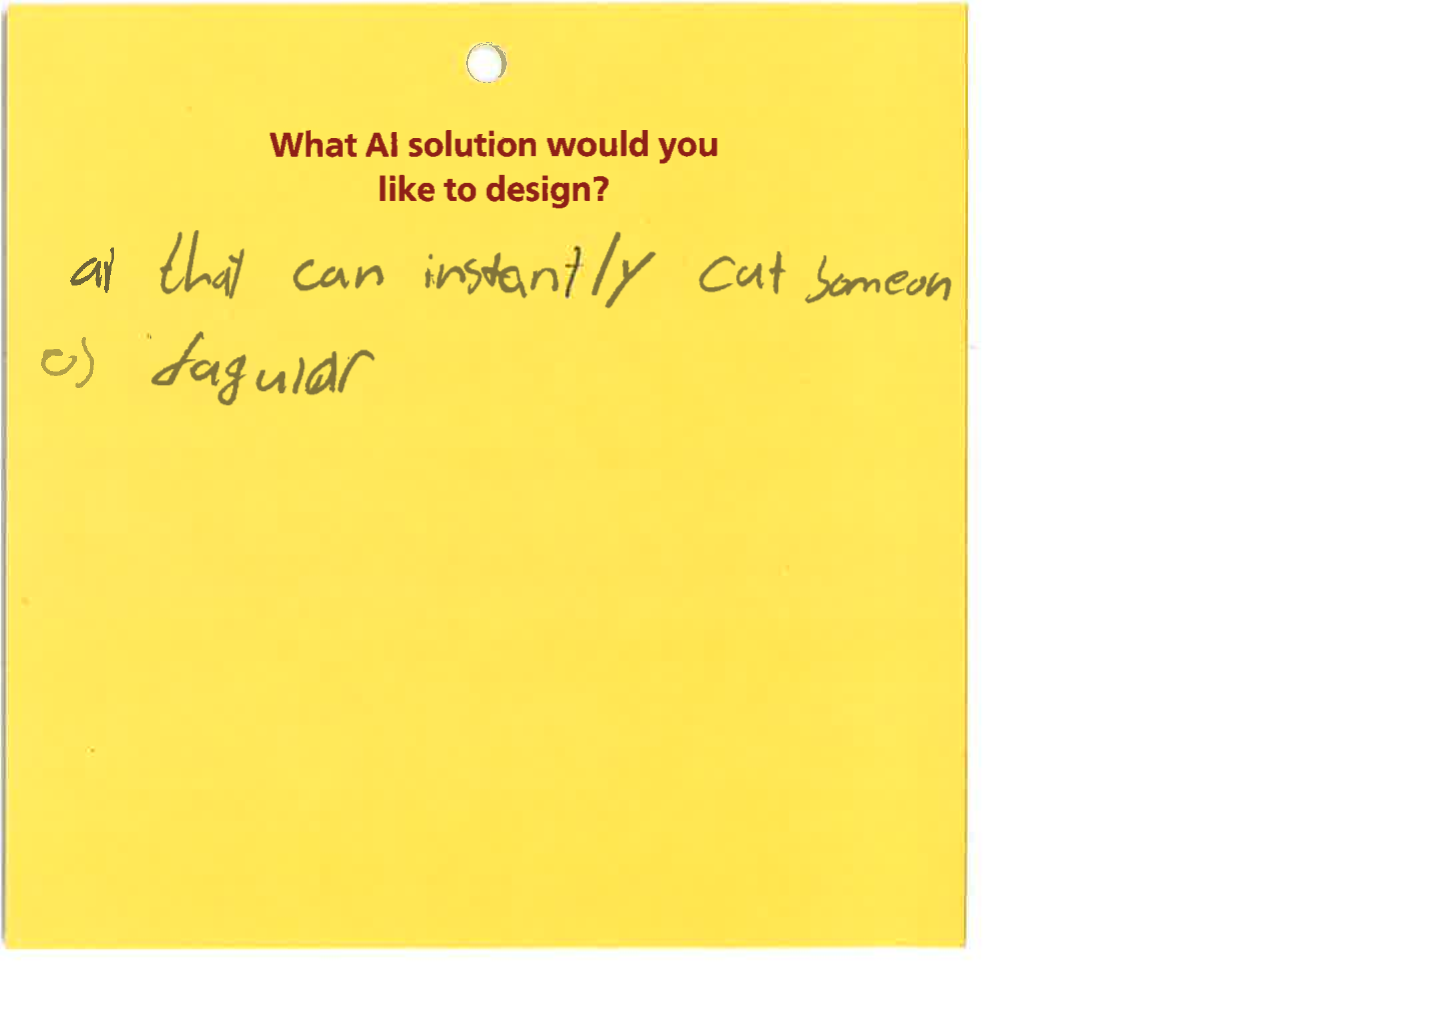 What AI solution would you
like to design?
ai that can instantly cut someon
e's jagular